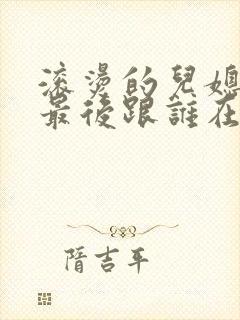 滚燙的兒媳
最後跟誰在
隋吉平